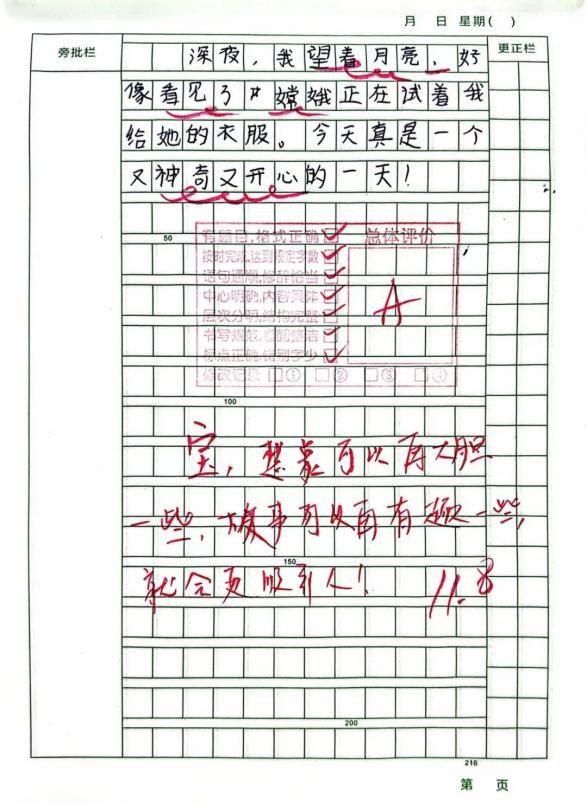 月 日 星期( )
旁批栏
更正栏
深夜，我望着月亮，好
像看见了嫦娥正在试着我
给她的衣服。今天真是一个
又神奇又开心的一天！
50
有题目，格式正确
总体评价
按时完成，达到规定字数
语句通顺，修辞恰当
中心明确，内容具体
A
层次分明，结构完整
书写规范，卷面整洁
标点正确，错别字少
修改记录 ① ② ③ ④
100
宝，想象可以再大胆
一些，故事可以再有趣一些，
150
就会更吸引人！ 11.8
200
216
第 页